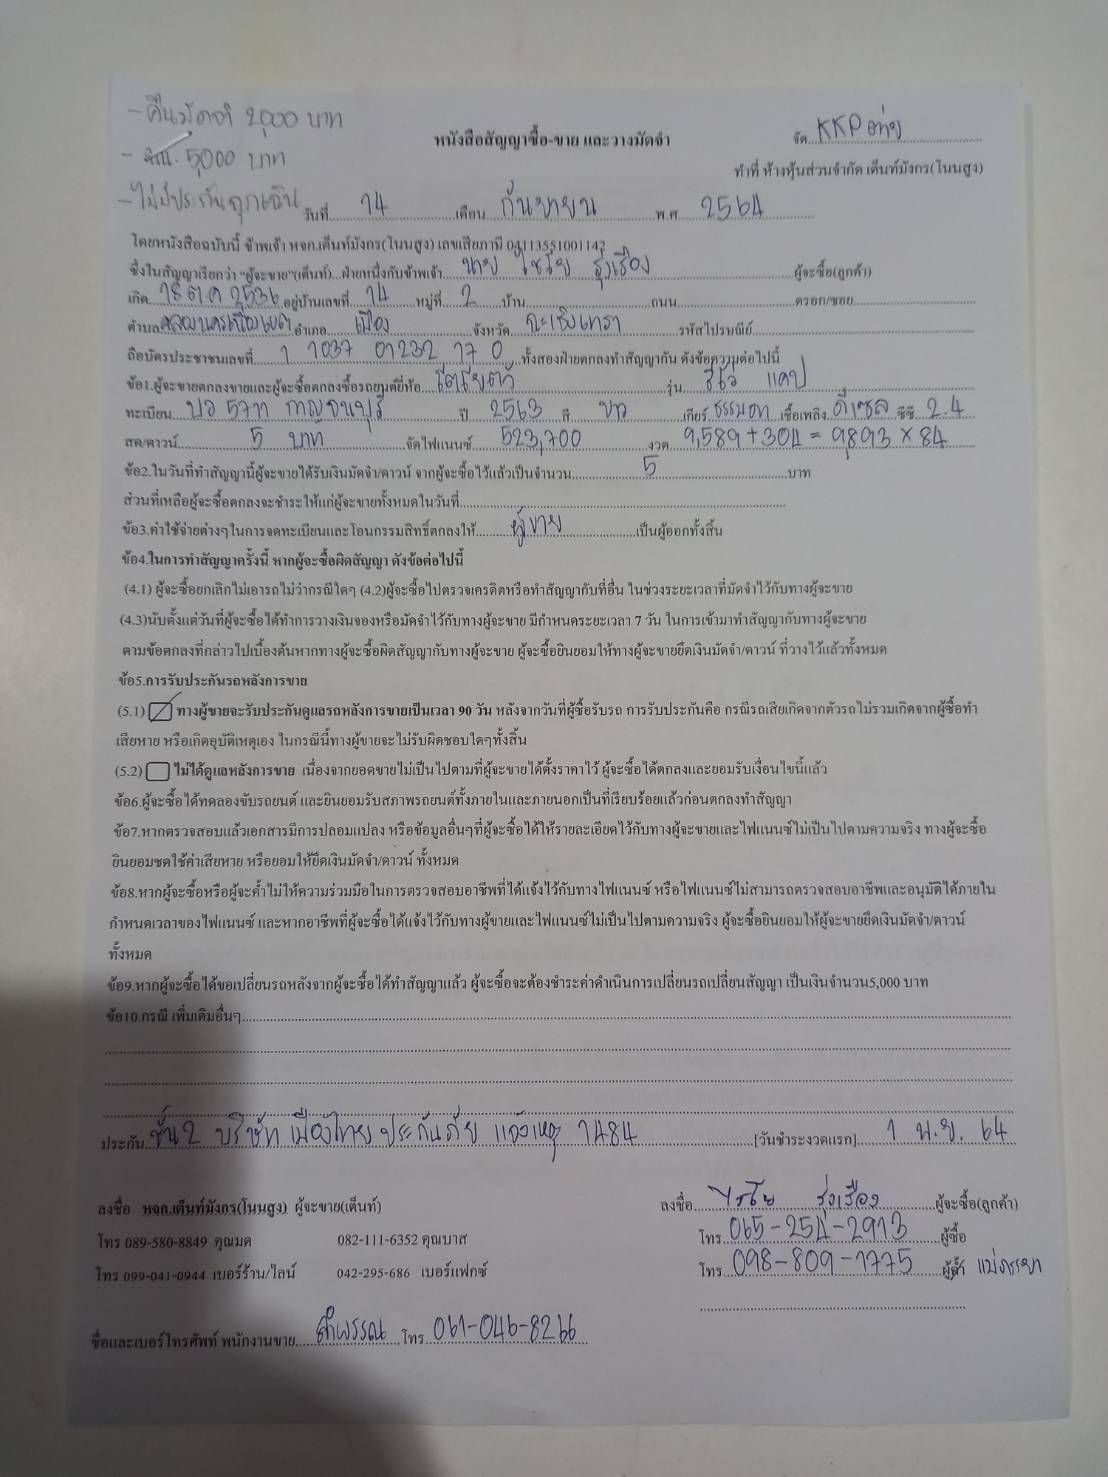 - คืนมัดจำ 2,000 บาท
หนังสือสัญญาซื้อ-ขาย และวางมัดจำ
จัด KKP
- 5,000 บาท
ทำที่ ห้างหุ้นส่วนจำกัด เต็นท์มังกร(โนนสูง)
- ไม่มีประกันฉุกเฉิน
วันที่ 14 เดือน กันยายน พ.ศ. 2564
โดยหนังสือฉบับนี้ ข้าพเจ้า หจก.เต็นท์มังกร(โนนสูง) เลขเสียภาษี 04113551001142
ซึ่งในสัญญาเรียกว่า "ผู้จะขาย"(เต็นท์)...ฝ่ายหนึ่งกับข้าพเจ้า นาย ไชโย รุ่งเรือง ผู้จะซื้อ(ลูกค้า)
เกิด 18 ต.ค 2536 อยู่บ้านเลขที่ 14 หมู่ที่ 2 บ้าน ถนน ตรอก/ซอย
ตำบล คลองนครเนื่องเขต อำเภอ เมือง จังหวัด ฉะเชิงเทรา รหัสไปรษณีย์
ถือบัตรประชาชนเลขที่ 1 1037 01232 17 0 ทั้งสองฝ่ายตกลงทำสัญญากัน ดังข้อความต่อไปนี้
ข้อ1.ผู้จะขายตกลงขายและผู้จะซื้อตกลงซื้อรถยนต์ยี่ห้อ โตโยต้า รุ่น รีโว่ แคป
ทะเบียน บอ 5711 กาญจนบุรี ปี 2563 สี ขาว เกียร์ ธรรมดา เชื้อเพลิง ดีเซล ซีซี 2.4
สด/ดาวน์ 5 บาท จัดไฟแนนซ์ 523,700 งวด 9,589 + 304 = 9,893 x 84
ข้อ2.ในวันที่ทำสัญญานี้ผู้จะขายได้รับเงินมัดจำ/ดาวน์ จากผู้จะซื้อไว้แล้วเป็นจำนวน 5 บาท
ส่วนที่เหลือผู้จะซื้อตกลงจะชำระให้แก่ผู้จะขายทั้งหมดในวันที่
ข้อ3.ค่าใช้จ่ายต่างๆในการจดทะเบียนและโอนกรรมสิทธิ์ตกลงให้ ผู้ขาย เป็นผู้ออกทั้งสิ้น
ข้อ4.ในการทำสัญญาครั้งนี้ หากผู้จะซื้อผิดสัญญา ดังข้อต่อไปนี้
(4.1) ผู้จะซื้อยกเลิกไม่เอารถไม่ว่ากรณีใดๆ (4.2)ผู้จะซื้อไปตรวจเครดิตหรือทำสัญญากับที่อื่น ในช่วงระยะเวลาที่มัดจำไว้กับทางผู้จะขาย
(4.3)นับตั้งแต่วันที่ผู้จะซื้อได้ทำการวางเงินจองหรือมัดจำไว้กับทางผู้จะขาย มีกำหนดระยะเวลา 7 วัน ในการเข้ามาทำสัญญากับทางผู้จะขาย
ตามข้อตกลงที่กล่าวไปเบื้องต้นหากทางผู้จะซื้อผิดสัญญากับทางผู้จะขาย ผู้จะซื้อยินยอมให้ทางผู้จะขายยึดเงินมัดจำ/ดาวน์ ที่วางไว้แล้วทั้งหมด
ข้อ5.การรับประกันรถหลังการขาย
(5.1) ทางผู้ขายจะรับประกันดูแลรถหลังการขายเป็นเวลา 90 วัน หลังจากวันที่ผู้ซื้อรับรถ การรับประกันคือ กรณีรถเสียเกิดจากตัวรถไม่รวมเกิดจากผู้ซื้อทำ
เสียหาย หรือเกิดอุบัติเหตุเอง ในกรณีนี้ทางผู้ขายจะไม่รับผิดชอบใดๆทั้งสิ้น
(5.2) ไม่ได้ดูแลหลังการขาย เนื่องจากยอดขายไม่เป็นไปตามที่ผู้จะขายได้ตั้งราคาไว้ ผู้จะซื้อได้ตกลงและยอมรับเงื่อนไขนี้แล้ว
ข้อ6.ผู้จะซื้อได้ทดลองขับรถยนต์ และยินยอมรับสภาพรถยนต์ทั้งภายในและภายนอกเป็นที่เรียบร้อยแล้วก่อนตกลงทำสัญญา
ข้อ7.หากตรวจสอบแล้วเอกสารมีการปลอมแปลง หรือข้อมูลอื่นๆที่ผู้จะซื้อได้ให้รายละเอียดไว้กับทางผู้จะขายและไฟแนนซ์ไม่เป็นไปตามความจริง ทางผู้จะซื้อ
ยินยอมชดใช้ค่าเสียหาย หรือยอมให้ยึดเงินมัดจำ/ดาวน์ ทั้งหมด
ข้อ8.หากผู้จะซื้อหรือผู้จะค้ำไม่ให้ความร่วมมือในการตรวจสอบอาชีพที่ได้แจ้งไว้กับทางไฟแนนซ์ หรือไฟแนนซ์ไม่สามารถตรวจสอบอาชีพและอนุมัติได้ภายใน
กำหนดเวลาของไฟแนนซ์ และหากอาชีพที่ผู้จะซื้อได้แจ้งไว้กับทางผู้ขายและไฟแนนซ์ไม่เป็นไปตามความจริง ผู้จะซื้อยินยอมให้ผู้จะขายยึดเงินมัดจำ/ดาวน์
ทั้งหมด
ข้อ9.หากผู้จะซื้อได้ขอเปลี่ยนรถหลังจากผู้จะซื้อได้ทำสัญญาแล้ว ผู้จะซื้อจะต้องชำระค่าดำเนินการเปลี่ยนรถเปลี่ยนสัญญา เป็นเงินจำนวน5,000 บาท
ข้อ10.กรณี เพิ่มเติมอื่นๆ
ประกัน ชั้น 2 บริษัท เมืองไทย ประกันภัย แจ้งเหตุ 1484 [วันชำระงวดแรก] 1 พ.ย. 64
ลงชื่อ หจก.เต็นท์มังกร(โนนสูง) ผู้จะขาย(เต็นท์)
ลงชื่อ ไชโย รุ่งเรือง ผู้จะซื้อ(ลูกค้า)
โทร 089-580-8849 คุณมด 082-111-6352 คุณบาส
โทร 065-254-2913 ผู้ซื้อ
โทร 099-041-0944 เบอร์ร้าน/ไลน์ 042-295-686 เบอร์แฟกซ์
โทร 098-809-1775 ผู้ค้ำ แม่ภรรยา
ชื่อและเบอร์โทรศัพท์ พนักงานขาย ลำพรรณ โทร 061-046-8266